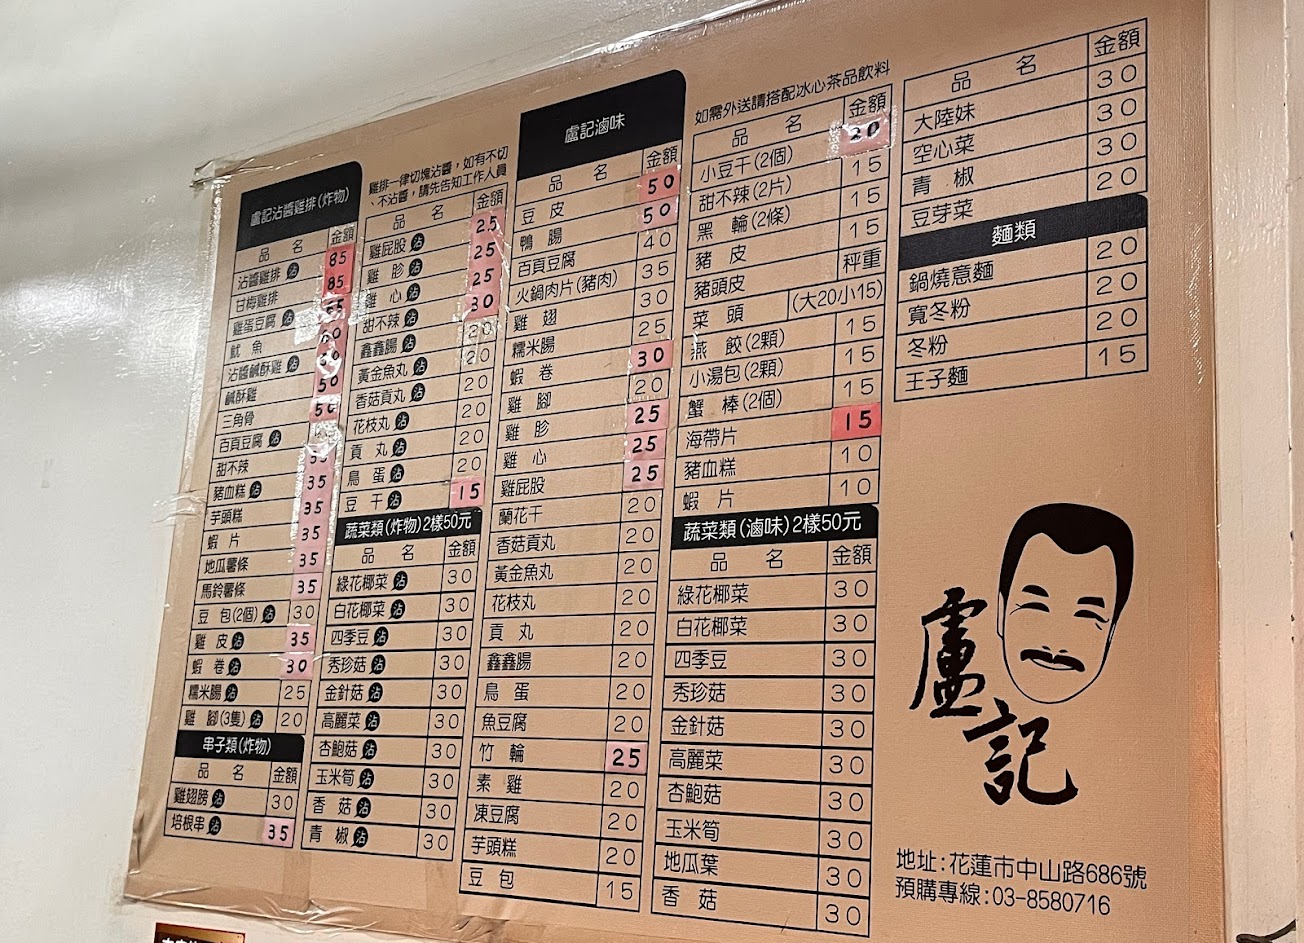 盧記沾醬雞排(炸物)
品 名 金額
沾醬雞排 沾 85
甘梅雞排 85
雞蛋豆腐 沾
魷 魚 60
沾醬鹹酥雞 沾
鹹酥雞 50
三角骨 50
百頁豆腐 沾
甜不辣 35
豬血糕 沾 35
芋頭糕 35
蝦 片 35
地瓜薯條 35
馬鈴薯條 35
豆 包(2個) 沾 30
雞 皮 沾 35
蝦 卷 沾 30
糯米腸 沾 25
雞 腳(3隻) 沾 20
串子類(炸物)
品 名 金額
雞翅膀 沾 30
培根串 沾 35
雞排一律切塊沾醬，如有不切
、不沾醬，請先告知工作人員
品 名 金額
雞屁股 沾 25
雞 胗 沾 25
雞 心 沾 25
甜不辣 沾 30
鑫鑫腸 沾 20
黃金魚丸 沾 20
香菇貢丸 沾 20
花枝丸 沾 20
貢 丸 沾 20
鳥 蛋 沾 20
豆 干 沾 15
蔬菜類(炸物)2樣50元
品 名 金額
綠花椰菜 沾 30
白花椰菜 沾 30
四季豆 沾 30
秀珍菇 沾 30
金針菇 沾 30
高麗菜 沾 30
杏鮑菇 沾 30
玉米筍 沾 30
香 菇 沾 30
青 椒 沾 30
盧記滷味
品 名 金額
豆 皮 50
鴨 腸 50
百頁豆腐 40
火鍋肉片(豬肉) 35
雞 翅 30
糯米腸 25
蝦 卷 30
雞 腳 20
雞 胗 25
雞 心 25
雞屁股 25
蘭花干 20
香菇貢丸 20
黃金魚丸 20
花枝丸 20
貢 丸 20
鑫鑫腸 20
鳥 蛋 20
魚豆腐 20
竹 輪 25
素 雞 20
凍豆腐 20
芋頭糕 20
豆 包 15
如需外送請搭配冰心茶品飲料
品 名 金額
小豆干(2個) 20
甜不辣(2片) 15
黑 輪(2條) 15
豬 皮 15
豬頭皮 秤重
菜 頭 (大20小15)
燕 餃(2顆) 15
小湯包(2顆) 15
蟹 棒(2個) 15
海帶片 15
豬血糕 10
蝦 片 10
蔬菜類(滷味)2樣50元
品 名 金額
綠花椰菜 30
白花椰菜 30
四季豆 30
秀珍菇 30
金針菇 30
高麗菜 30
杏鮑菇 30
玉米筍 30
地瓜葉 30
香 菇 30
品 名 金額
大陸妹 30
空心菜 30
青 椒 30
豆芽菜 20
麵類
鍋燒意麵 20
寬冬粉 20
冬粉 20
王子麵 15
盧記
地址:花蓮市中山路686號
預購專線:03-8580716